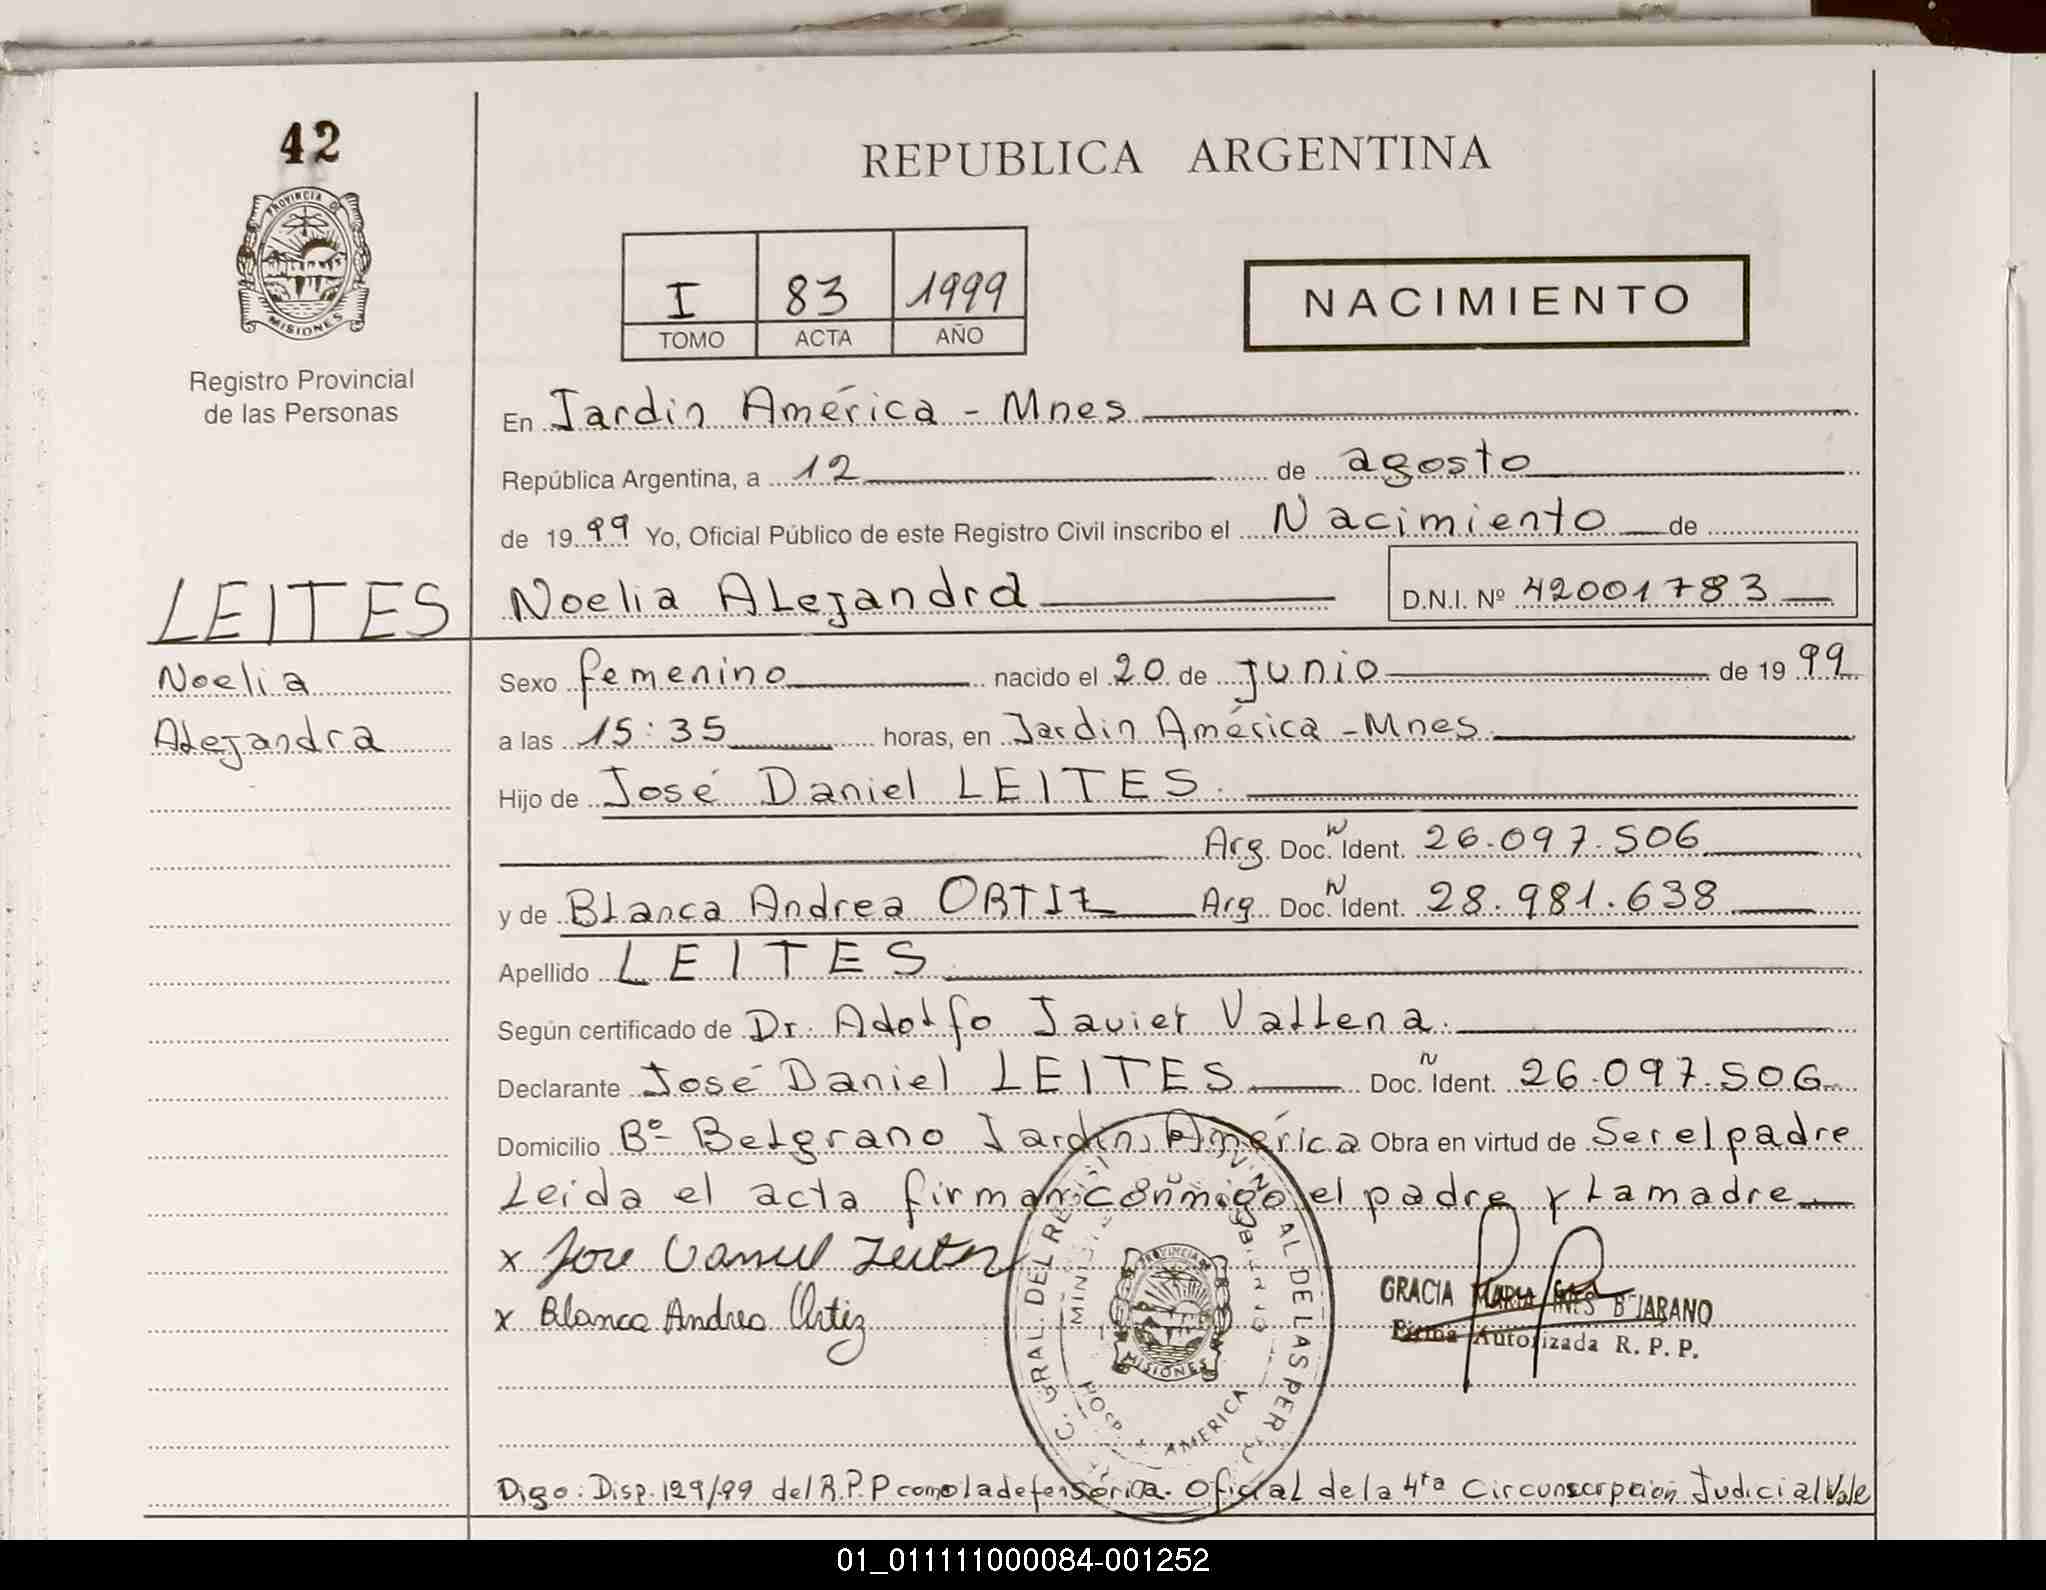 42
REPUBLICA ARGENTINA
PROVINCIA D
MISIONES
Registro Provincial
de las Personas
I 83 1999
TOMO ACTA AÑO
NACIMIENTO
En Jardin América - Mnes
República Argentina, a 12 de agosto
de 1999 Yo, Oficial Público de este Registro Civil inscribo el Nacimiento de
LEITES Noelia Alejandra D.N.I. Nº 42001783
Noelia
Alejandra
Sexo femenino nacido el 20 de junio de 1999
a las 15:35 horas, en Jardin América - Mnes.
Hijo de José Daniel LEITES.
Arg. Doc. N Ident. 26.097.506
y de Blanca Andrea ORTIZ Arg. Doc. N Ident. 28.981.638
Apellido LEITES
Según certificado de Dr. Adolfo Javier Vallena.
Declarante José Daniel LEITES Doc. N Ident. 26.097.506
Domicilio Bº Belgrano Jardin América Obra en virtud de Ser el padre
Leida el acta firman conmigo el padre y la madre
x Jose Daniel Leites
x Blanca Andrea Ortiz
GRAL. DEL AL DE LAS PER
PROVINCIA
MISIONES
HOSP. AMERICA
GRACIA MARIA INES BEJARANO
Firma Autorizada R. P. P.
Digo: Disp. 129/99 del R.P.P como la defensoria. Oficial de la 4ta Circunscrpción Judicial Vale
01_011111000084-001252